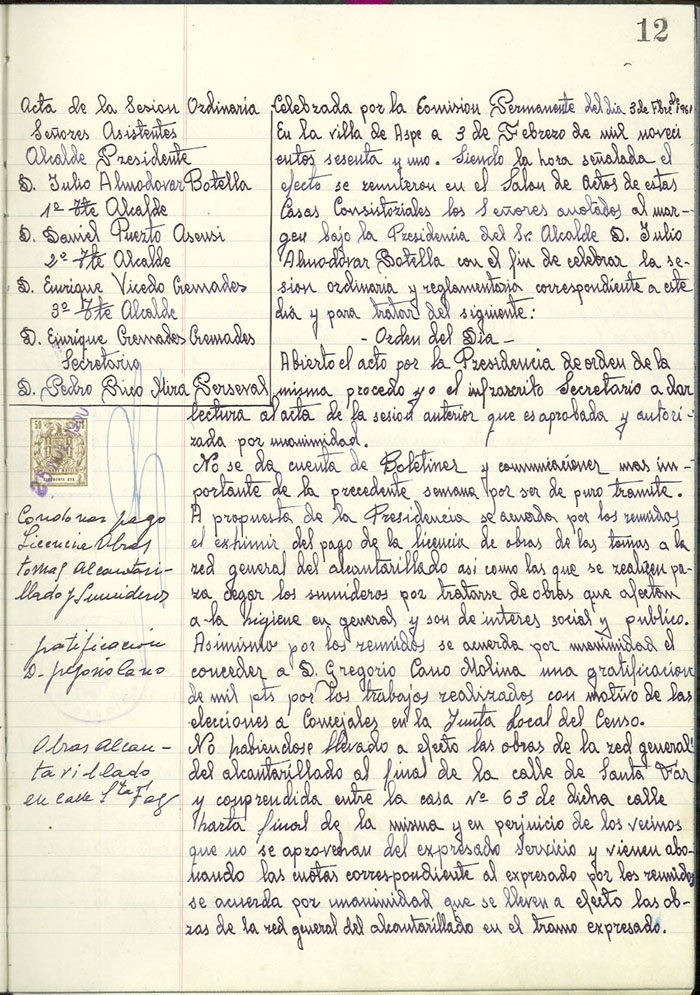 12
Acta de la Sesion Ordinaria Celebrada por la Comision Permanente del dia 3 de Fbrº de 1961
Señores Asistentes
Alcalde Presidente
D. Julio Almodovar Botella
1º Tte Alcalde
D. Daniel Puerto Asensi
2º Tte Alcalde
D. Enrique Vicedo Cremades
3º Tte Alcalde
D. Enrique Cremades Cremades
Secretario
D. Pedro Pico Mira Perseval
En la villa de Aspe a 3 de Febrero de mil noveci
entos sesenta y uno. Siendo la hora señalada el
efecto se reunieron en el Salon de Actos de estas
Casas Consistoriales los Señores anotados al mar-
gen bajo la Presidencia del Sr. Alcalde D. Julio
Almodovar Botella con el fin de celebrar la se-
sion ordinaria y reglamentaria correspondiente a este
dia y para tratar del siguiente:
- Orden del Dia -
Abierto el acto por la Presidencia de orden de la
misma procedo yo el infrascrito Secretario a dar
lectura al acta de la sesion anterior que es aprobada y autori-
zada por unanimidad.
No se da cuenta de Boletines y comunicaciones mas im-
portante de la precedente semana por ser de puro tramite.
Condonar pago
Licencia Obras
tomas Alcantari-
llado y Sumideros
A propuesta de la Presidencia se acuerda por los reunidos
el exhimir del pago de la licencia de obras de las tomas a la
red general del alcantarillado asi como las que se realizen pa-
ra cegar los sumideros por tratarse de obras que afectan
a la higiene en general y son de interes social y publico.
gratificación
D. Cano
Asimismo por los reunidos se acuerda por unanimidad el
conceder a D. Gregorio Cano Molina una gratificacion
de mil pts por los trabajos realizados con motivo de las
elecciones a Concejales en la Junta Local del Censo.
Obras Alcan-
tarillado
en calle Sta Faz
No habiendose llevado a efecto las obras de la red general
del alcantarillado al final de la calle de Santa Faz
y comprendida entre la casa nº 63 de dicha calle
hasta final de la misma y en perjuicio de los vecinos
que no se aprovechan del expresado servicio y vienen abo-
nando las cuotas correspondiente al expresado por los reunidos
se acuerda por unanimidad que se lleven a efecto las ob-
ras de la red general del alcantarillado en el tramo expresado.